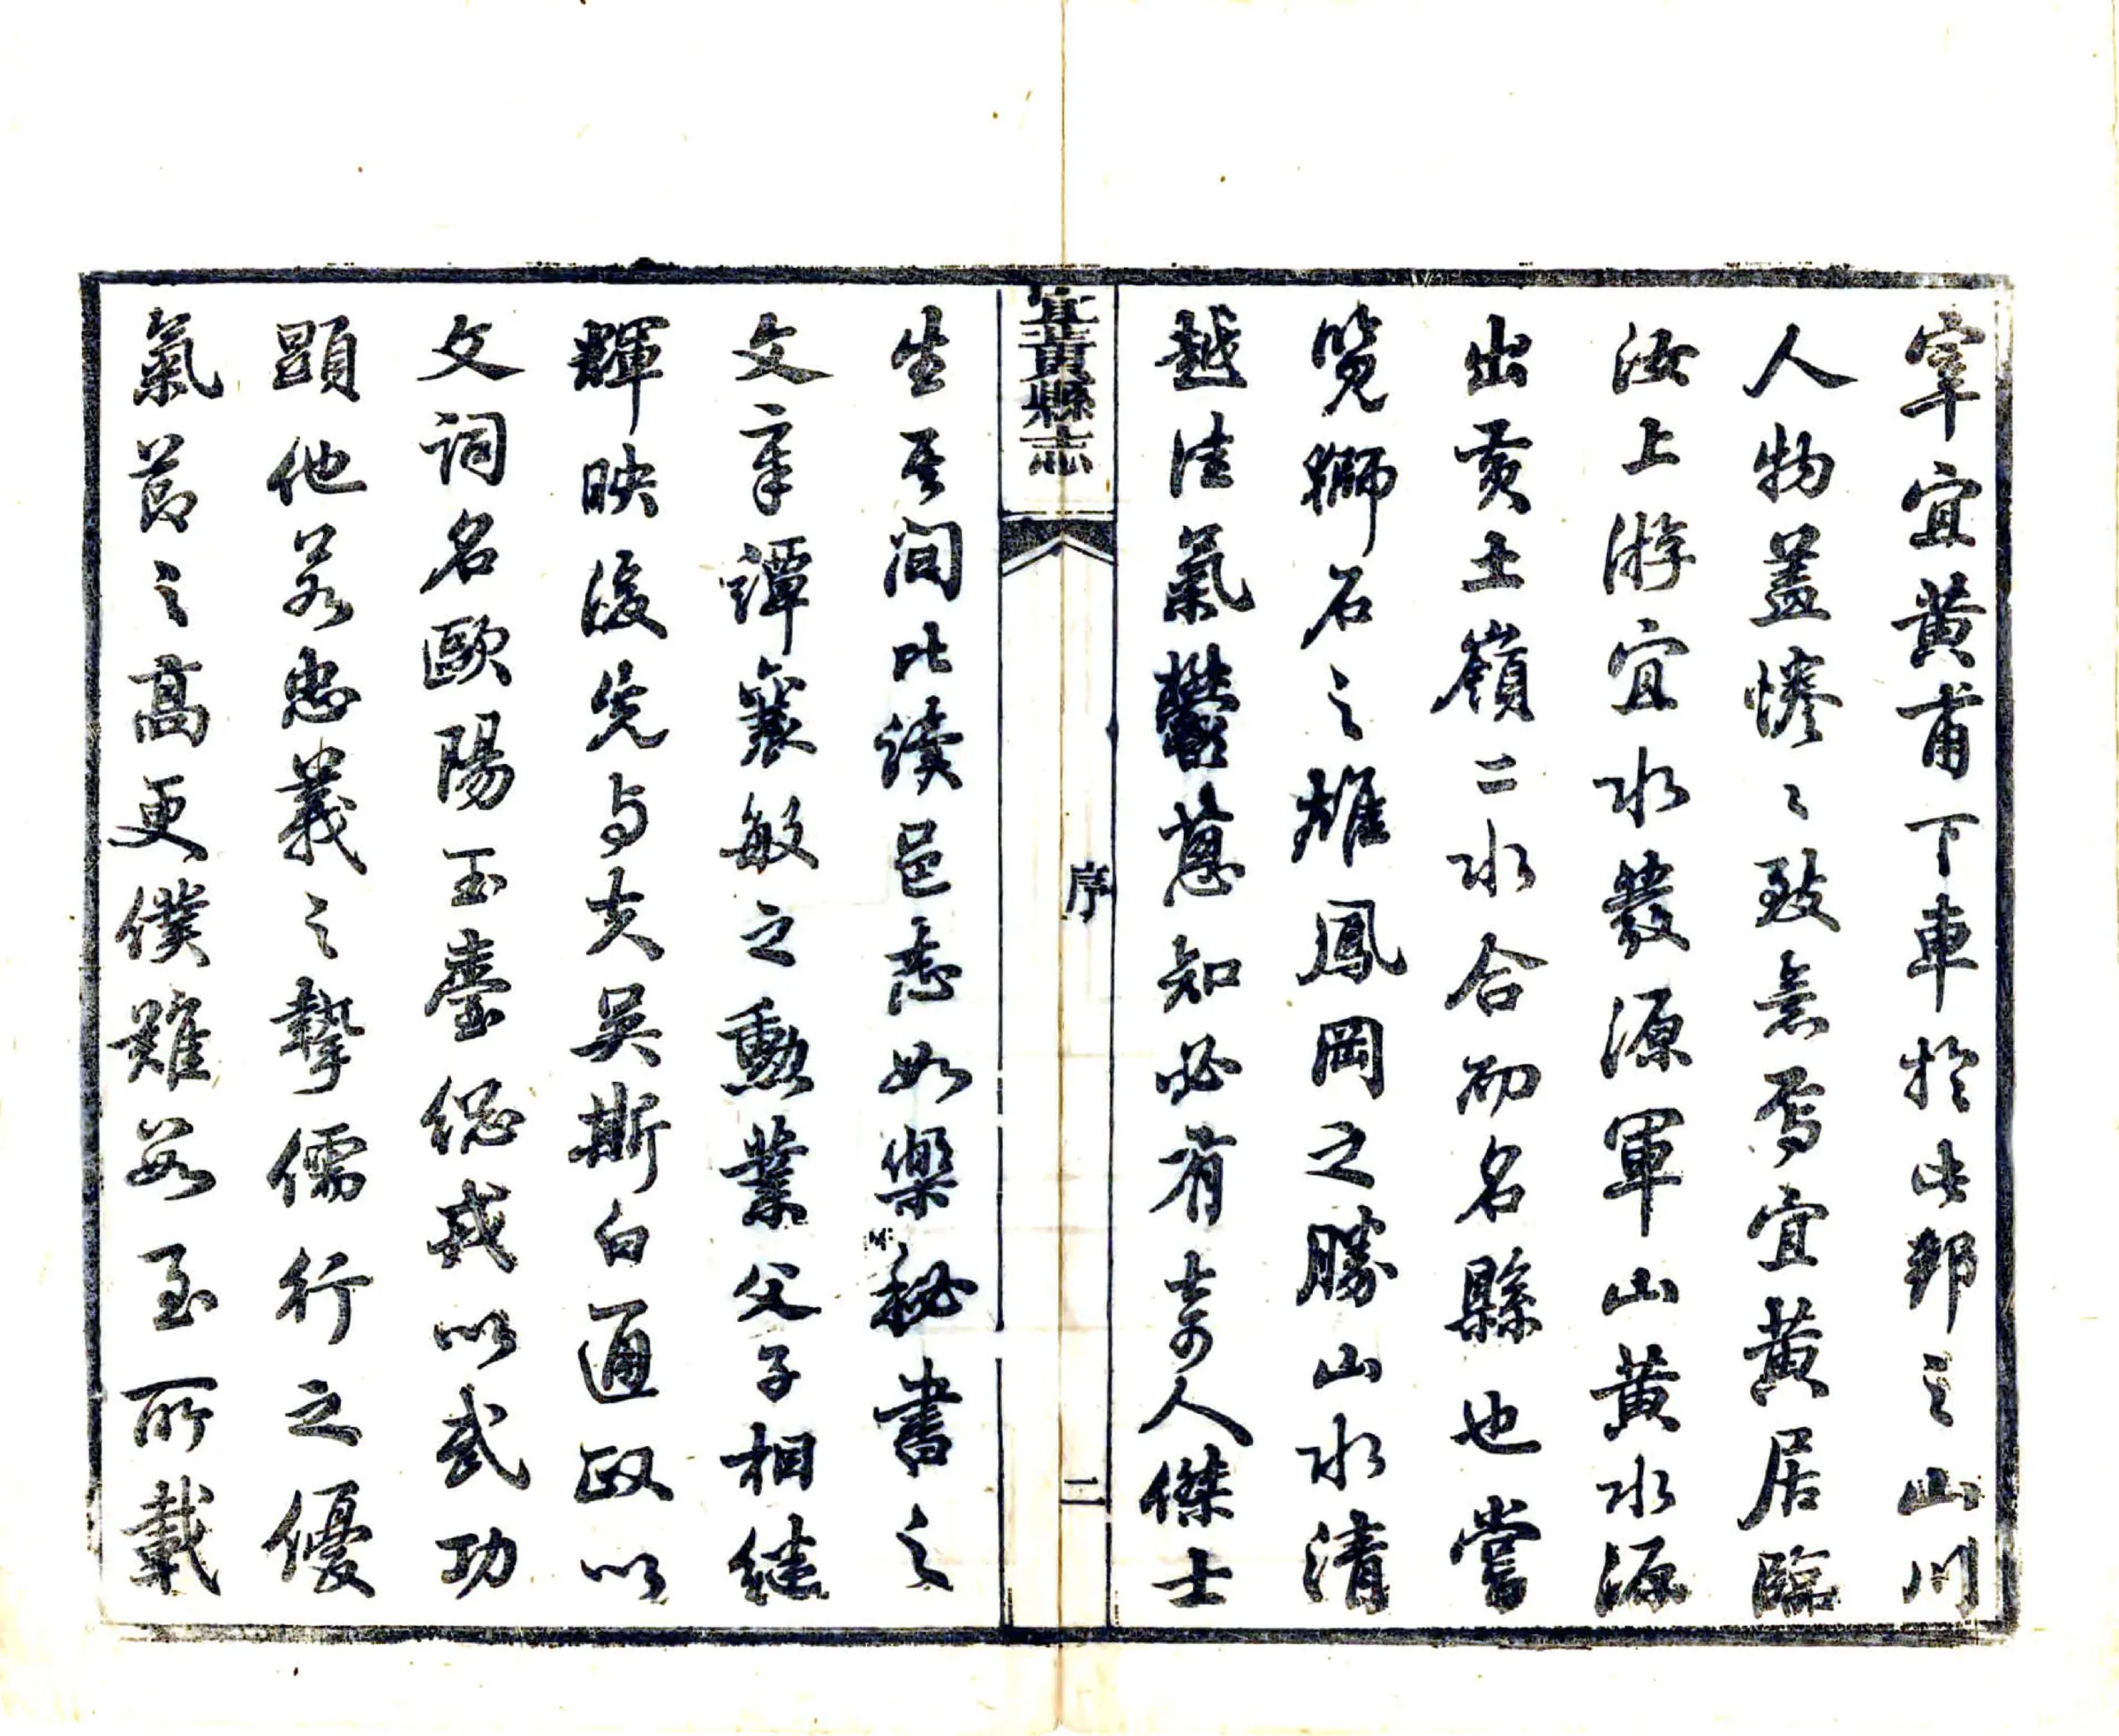 宰宜黄甫下車於此邦之山川
人物蓋惓〻致意焉宜黄居臨
汝上游宜水發源軍山黄水源
出黄土嶺二水合而名縣也嘗
覽獅石之雄鳳岡之勝山水清
越佳氣鬱蔥知必有奇人傑士
宜黃縣志
序
二
生其间比讀邑志如樂秘書之
文章譚襄敏之勳業父子相继
輝映後先与夫吴斯白通政以
文词名歐陽玉臺總戎以武功
顕他若忠義之摯儒行之優
氣節之高更僕難數至所載